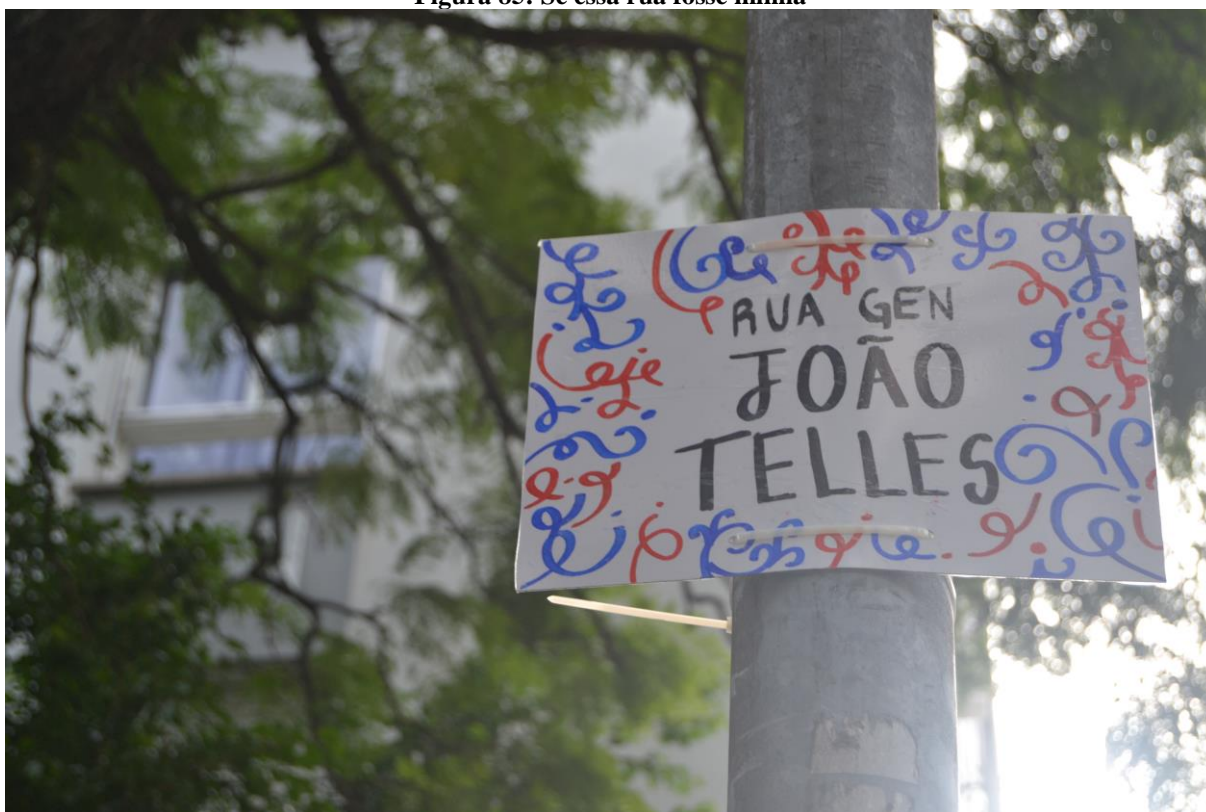 Figura 85: Se essa rua fosse minha
RUA GEN
JOÃO
TELLES